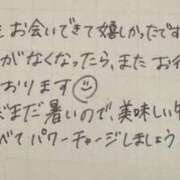 お会いできて嬉しかったです
がなくなったら、また お
おります
まだ暑いので、美味しい
べて パワーチャージしましょう